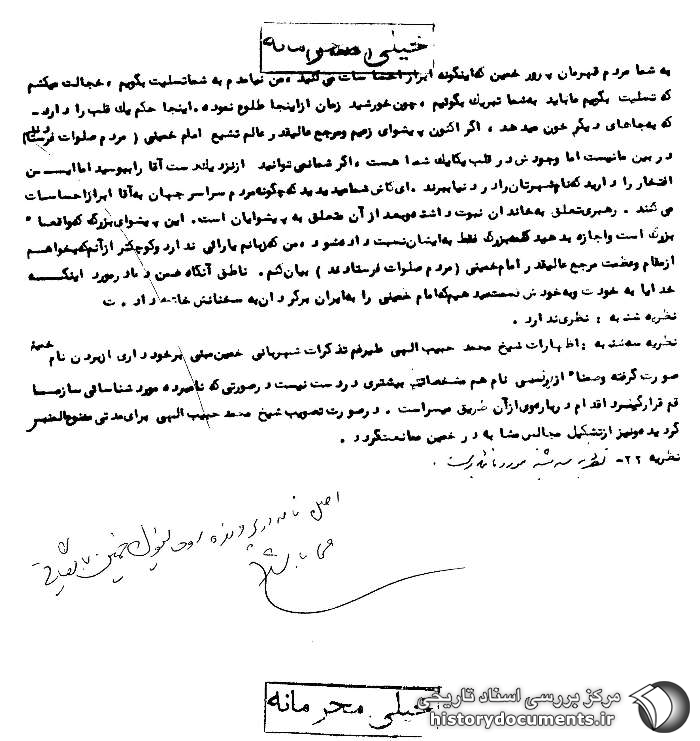 خیلی محرمانه
به شما مردم قهرمان پرور خمین که اینگونه ابراز احساسات می کنید، من نیامدم به شما تسلیت بگویم، خجالت میکشم
که تسلیت بگویم ما باید به شما تبریک بگوئیم، چون خورشید زمان از اینجا طلوع نموده. اینجا حکم یک قلب را دارد
که به جاهای دیگر خون میدهد، اگر اکنون پیشوای زعیم ومرجع عالیقدر عالم تشیع امام خمینی ( مردم صلوات فرستادند
در بین ما نیست اما وجودش در قلب یکایک شما هست، اگر شما نمی توانید از نزدیک دست آقا را ببوسید اما ایسن
افتخار را دارید که نام شهرتان را در دنیا ببرند. ای کاش شما میدیدید که چگونه مردم سراسر جهان به آقا ابراز احساسات
می کنند. رهبری تعلق به خاندان نبوت داشته وبعد از آن متعلق به پیشوایان است. این پیشوای بزرگ که واقعا"
بزرگ است واجازه بدهید کلمه بزرگ فقط به ایشان نسبت داده شود، من که زبانم یارائی ندارد وکوچکتر از آنم که بخواهم
از مقام وعظمت مرجع عالیقدر امام خمینی (مردم صلوات فرستادند) بیان کنم. ناطق آنگاه ضمن دعا در مورد اینکه
خدایا به خودت وبه خودش قسمت میدهیم که امام خمینی را به ایران برگردان به سخنانش خاتمه داد. ت
نظریه شنبه : نظری ندارد.
نظریه سه شنبه : اظهارات شیخ محمد حبیب الهی علیرغم تذکرات شهربانی خمین مبنی بر خود داری از بردن نام خمینی
صورت گرفته وضمنا" از رنسی نام هم مشخصات بیشتری در دست نیست در صورتی که نامبرده مورد شناسائی سازمان
قم قرار گیرد اقدام درباره وی از آن طریق میسر است. در صورت تصویب شیخ محمد حبیب الهی برای مدتی ممنوع المنبر
گردیده ونیز از تشکیل مجالس مشابه در خمین ممانعت گردد.
نظریه ۲۲- نظریه سه شنبه مورد تائید است.
اصل نامه در پرونده
می باشد
خیلی محرمانه
مرکز بررسی اسناد تاریخی
historydocuments.ir